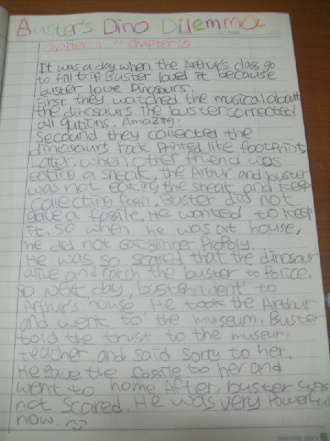 Buster's Dino Dilemma
Chapter 1 ~ Chapter 10
It was a day when the Arthur's class go
to fill trip Buster loved it because
buster love Dinosours.
First they watched the musical about
the dinosaurs The buster corrected
all qutions. Amazing.
Secound they collected the
dinosours rock Printed like footprints
Later, when other friend was
eating a sneak, the Arthur and buster
was not eating the sneat and keep
collecting fossil. Buster did not
gave a fossile. He wanted to keep
it. so when he was at house,
he did not eat dinner Propoly.
He was so scared that the dinosaur
alive and catch the buster to Police.
so next day, buster went to
Arthur's house. He took the Arthur
and went to the museum. Buster
told the trust to the museum
teacher and said sorry to her.
He gave the fossile to her and
went to home After, buster was
not scared. He was very Powerful
now.